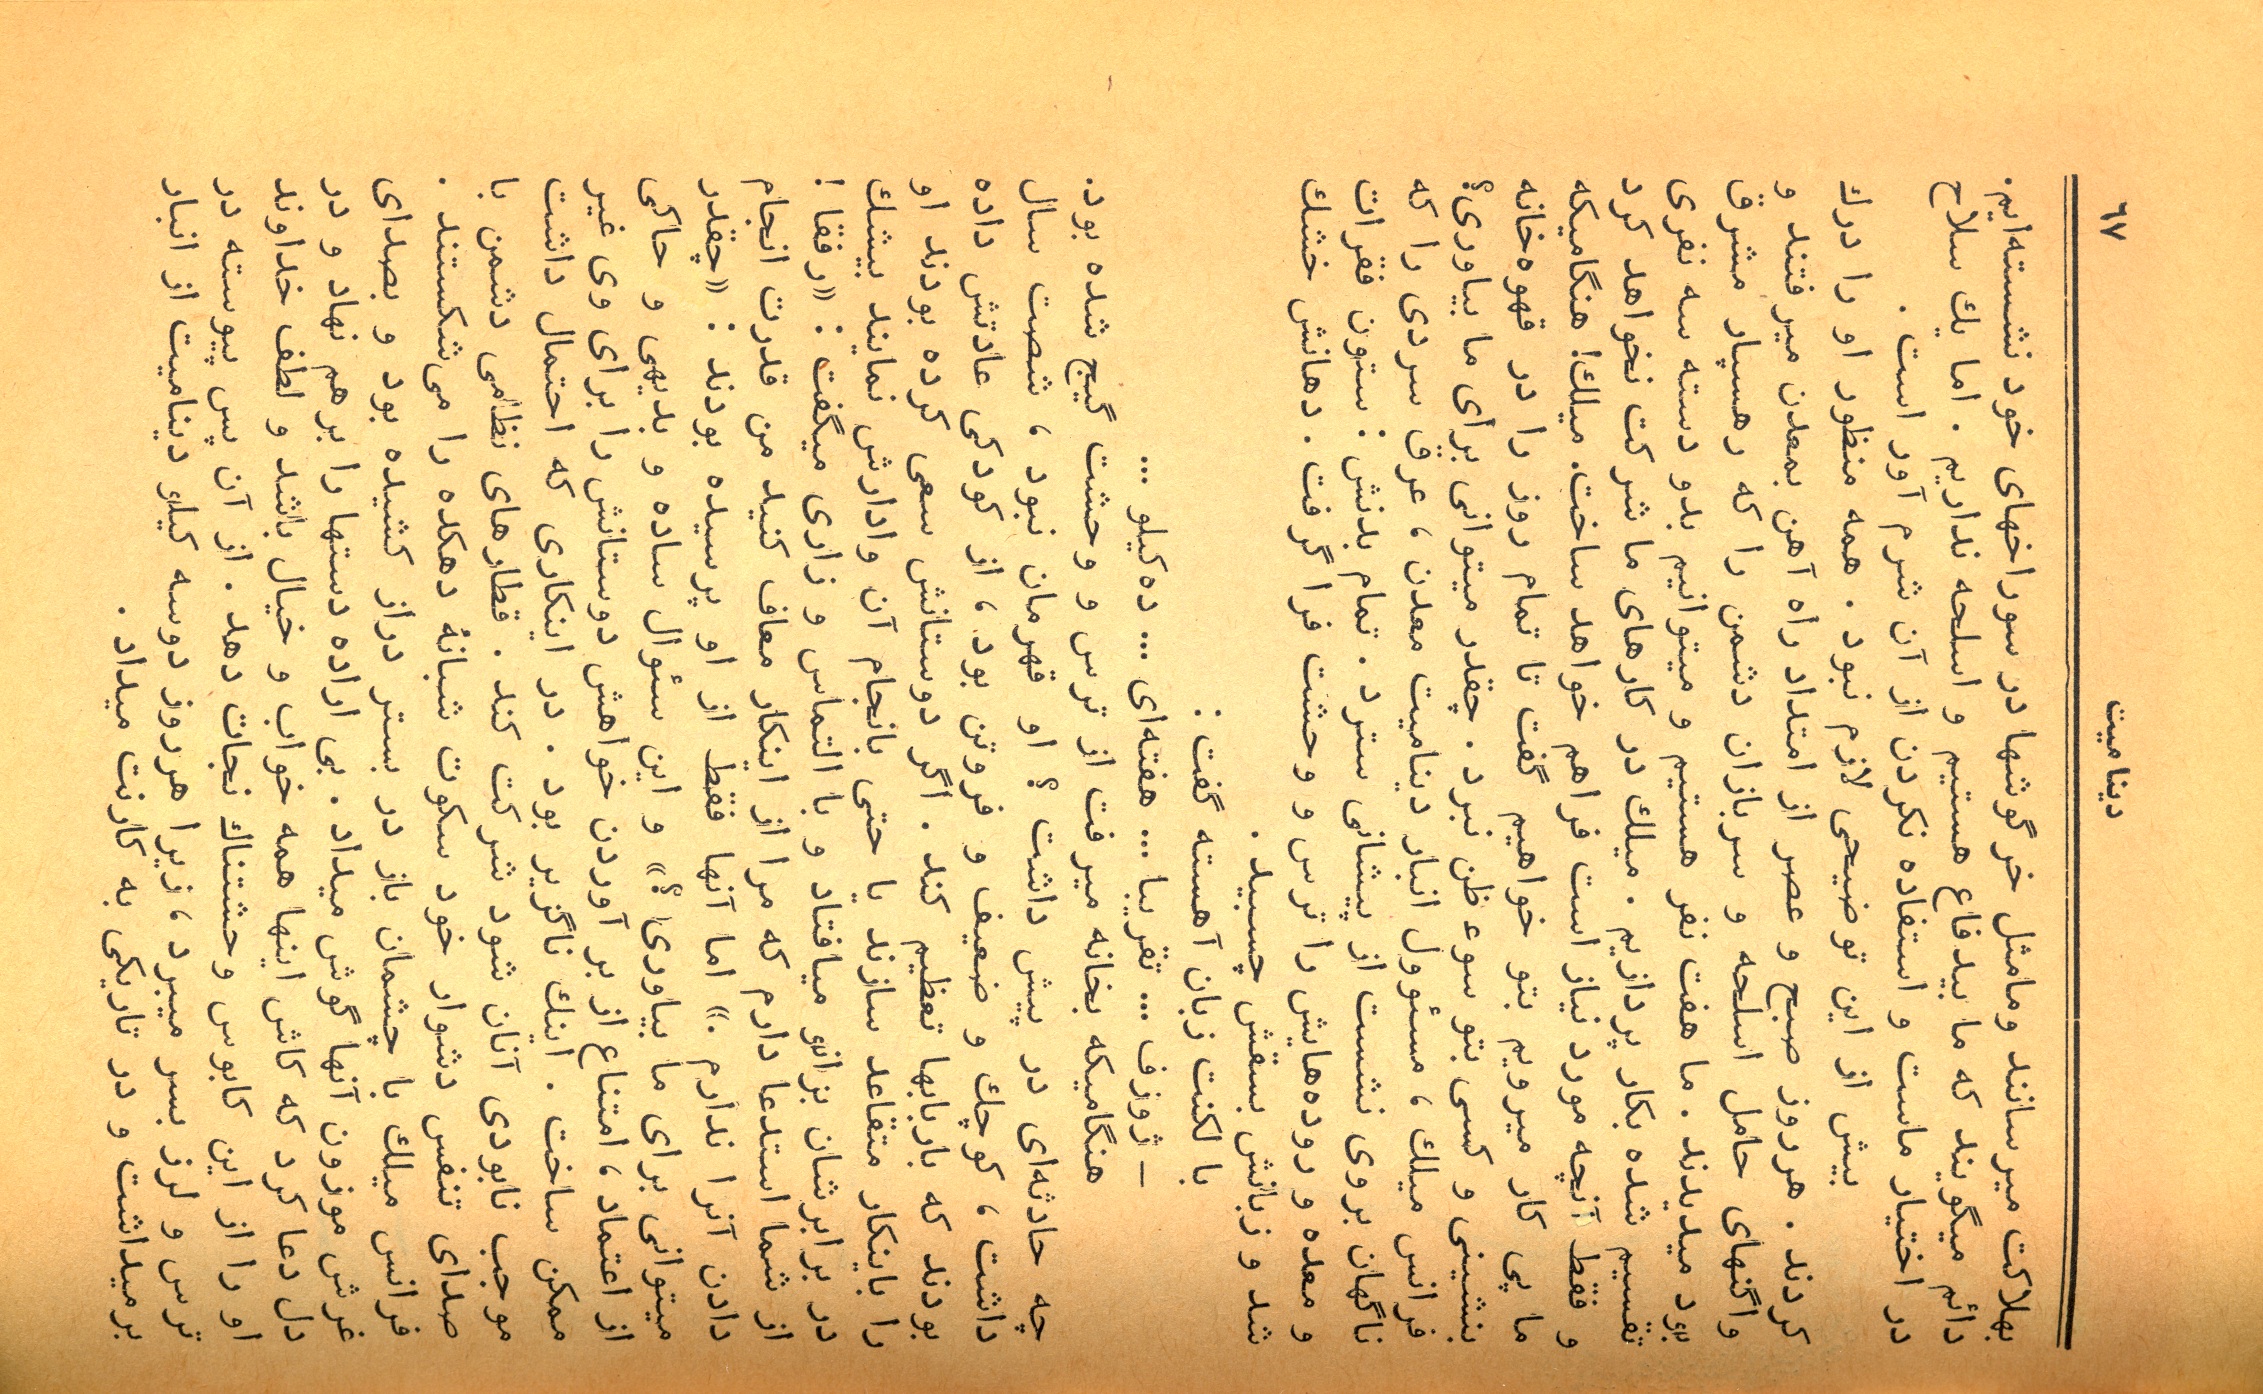 ۶۷
دینامیت
بهلاکت میرسانند ومامثل خرگوشها در سوراخهای خود نشسته‌ایم.
دائم میگویند که ما بیدفاع هستیم و اسلحه نداریم . اما یك سلاح
در اختیار ماست و استفاده نکردن از آن شرم آور است .
بیش از این توضیحی لازم نبود . همه منظور او را درك
کردند . هرروز صبح و عصر از امتداد راه آهن بمعدن میرفتند و
واگنهای حامل اسلحه و سربازان دشمن را که رهسپار مشرق
بود میدیدند . ما هفت نفر هستیم و میتوانیم بدو دسته سه نفری
تقسیم شده بکار پردازیم . میلك در کارهای ما شرکت نخواهد کرد
و فقط آنچه مورد نیاز است فراهم خواهد ساخت. میلك! هنگامیکه
ما پی کار میرویم بتو خواهیم گفت تا تمام روز را در قهوه‌خانه
بنشینی و کسی بتو سوءظن نبرد . چقدر میتوانی برای ما بیاوری؟
فرانس میلك ، مسئوول انبار دینامیت معدن ، عرق سردی را که
ناگهان بروی نشست از پیشانی سترد . تمام بدنش : ستون فقرات
و معده و روده‌هایش را ترس و وحشت فرا گرفت . دهانش خشك
شد و زبانش بسقش چسبید .
با لکنت زبان آهسته گفت :
— ژوزف ... تقریبا ... هفته‌ای ... ده کیلو ...
هنگامیکه بخانه میرفت از ترس و وحشت گیج شده بود.
چه حادثه‌ای در پیش داشت ؟ او قهرمان نبود ، شصت سال
داشت ، کوچك و ضعیف و فروتن بود ، از کودکی عادتش داده
بودند که باربابها تعظیم کند . اگر دوستانش سعی کرده بودند او
را باینکار متقاعد سازند یا حتی بانجام آن وادارش نمایند بیشك
در برابرشان بزانو میافتاد و با التماس و زاری میگفت : «رفقا !
از شما استدعا دارم که مرا از اینکار معاف کنید من قدرت انجام
دادن آنرا ندارم .» اما آنها فقط از او پرسیده بودند : «چقدر
میتوانی برای ما بیاوری ؟» و این سئوال ساده و بدیهی و حاکی
از اعتماد ، امتناع از بر آوردن خواهش دوستانش را برای وی غیر
ممکن ساخت . اینك ناگزیر بود . در اینکاری که احتمال داشت
موجب نابودی آنان شود شرکت کند . قطارهای نظامی دشمن با
صدای تنفس دشوار خود سکوت شبانهٔ دهکده را می‌شکستند .
فرانس میلك با چشمان باز در بستر دراز کشیده بود و بصدای
غرش موزون آنها گوش میداد . بی اراده دستها را برهم نهاد و در
دل دعا کرد که کاش اینها همه خواب و خیال باشد و لطف خداوند
او را از این کابوس وحشتناك نجات دهد . از آن پس پیوسته در
ترس و لرز بسر میبرد ، زیرا هرروز دوسه کیلو دینامیت از انبار
برمیداشت و در تاریکی به کارنت میداد .